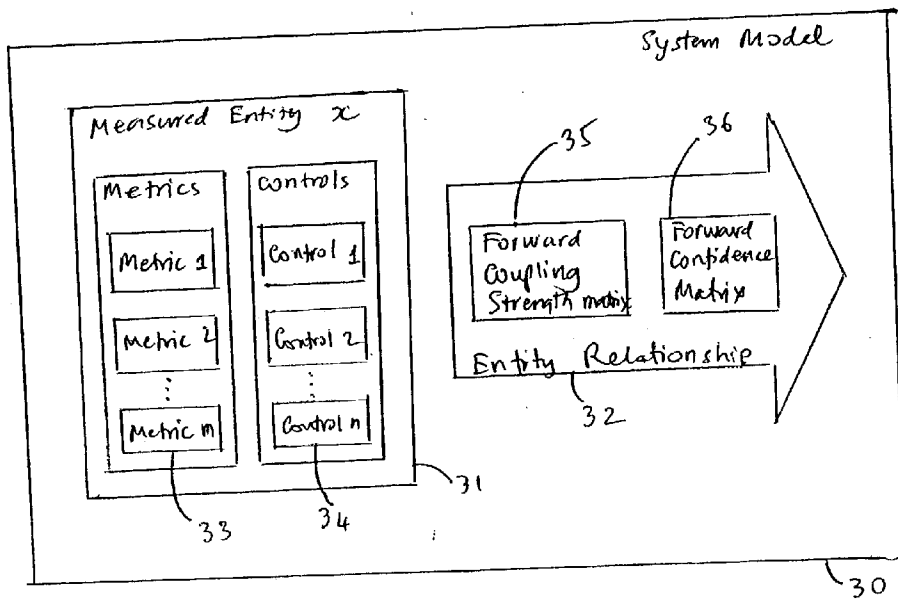 System Model
Measured Entity x
Metrics
Metric 1
Metric 2
⋮
Metric m
33
Controls
Control 1
Control 2
⋮
Control n
34
31
35
Forward
Coupling
Strength matrix
36
Forward
Confidence
Matrix
Entity Relationship
32
30